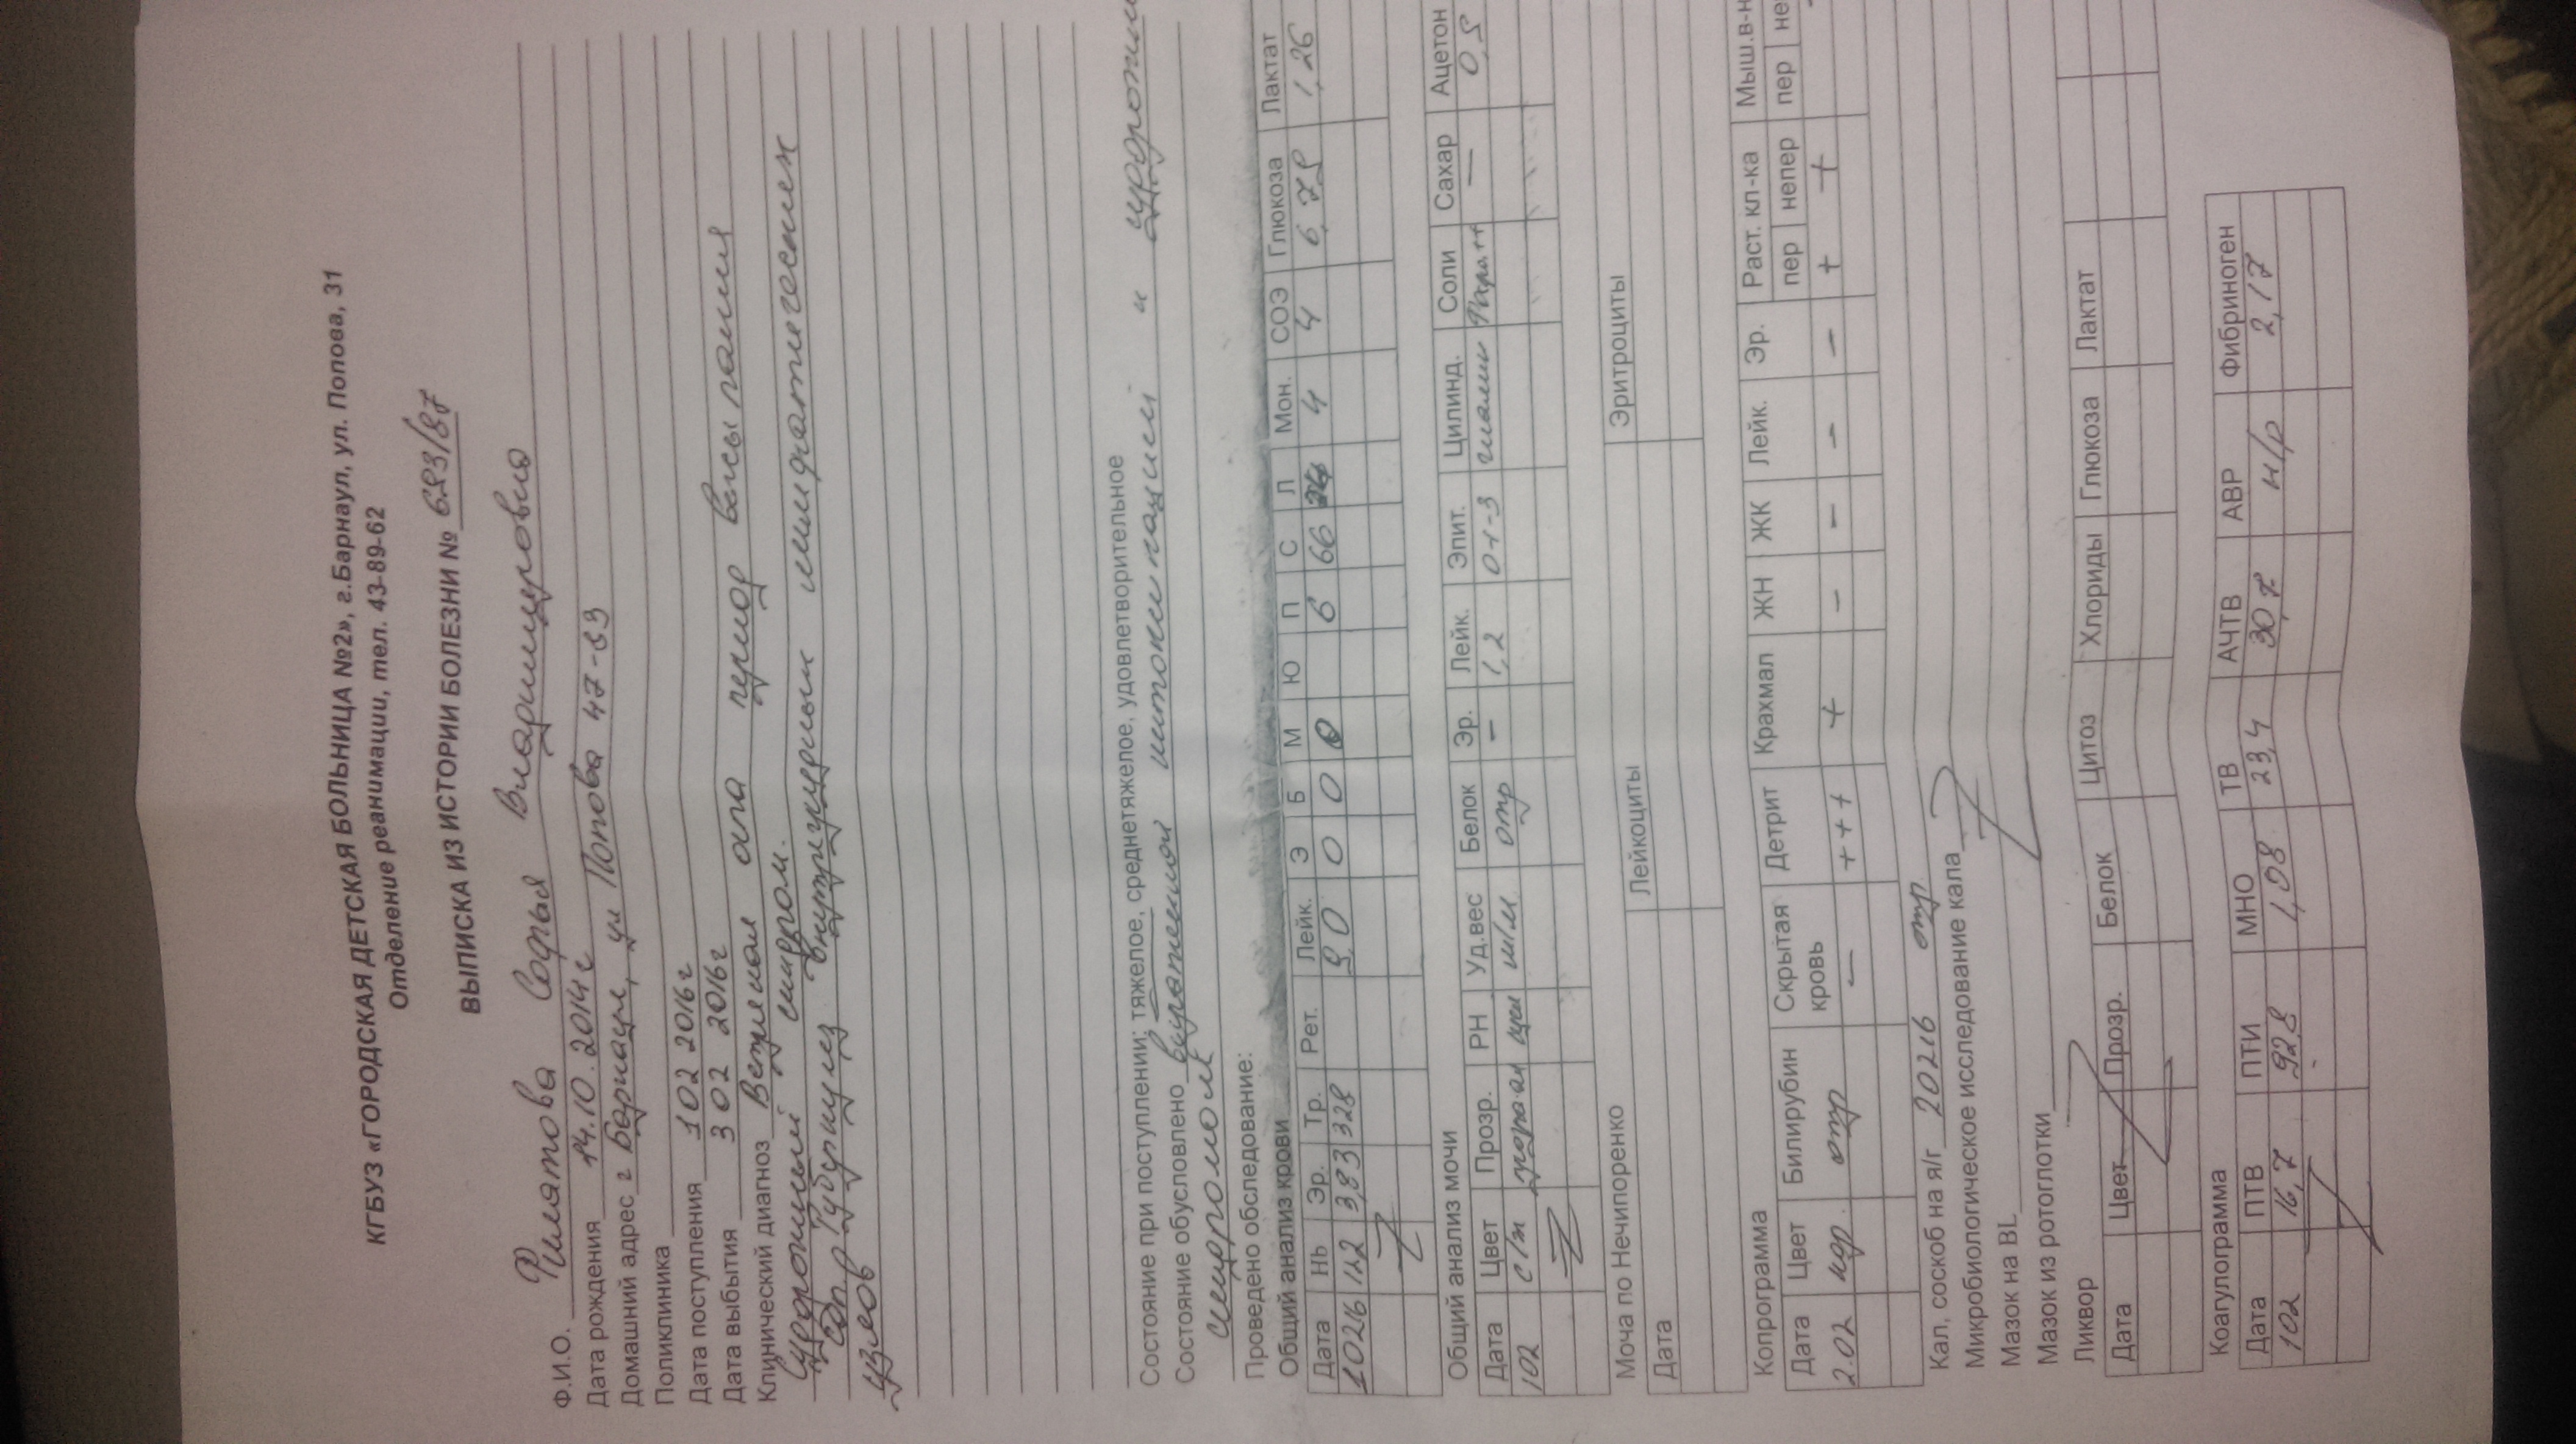 КГБУЗ «ГОРОДСКАЯ ДЕТСКАЯ БОЛЬНИЦА №2», г.Барнаул, ул. Попова, 31
Отделение реанимации, тел. 43-89-62
ВЫПИСКА ИЗ ИСТОРИИ БОЛЕЗНИ № 693/87
Ф.И.О. Филатова Софья Владимировна
Дата рождения 14.10.2014г
Домашний адрес г Барнаул, ул Попова 47-93
Поликлиника
Дата поступления 1 02 2016г
Дата выбытия 3 02 2016г
Клинический диагноз Ветряная оспа период высыпания
судорожный синдром.
соп Туберкулез внутригрудных лимфатических
узлов
Состояние при поступлении: тяжелое, среднетяжелое, удовлетворительное
Состояние обусловлено интоксикацией и
синдромом
Проведено обследование:
Общий анализ крови
Дата Нь Эр. Тр. Рет. Лейк. Э Б М Ю П С Л Мон. СОЭ Глюкоза Лактат
10216 112 3,83 328 9,0 0 0 0 6 66 24 4 4 6,75 1,26
Общий анализ мочи
Дата Цвет Прозр. РН Уд.вес Белок Эр. Лейк. Эпит. Цилинд. Соли Сахар Ацетон
102 с/ж м/м отр – 1,2 0-1-3 – 0,5
Моча по Нечипоренко
Дата Лейкоциты Эритроциты
Копрограмма
Дата Цвет Билирубин Скрытая кровь Детрит Крахмал ЖН ЖК Лейк. Эр. Раст. кл-ка Мыш.в-н
пер непер пер не
2.02 кор. отр – +++ + – – – – + +
Кал, соскоб на я/г 20216 отр
Микробиологическое исследование кала
Мазок на BL
Мазок из ротоглотки
Ликвор
Дата Цвет Прозр. Белок Цитоз Хлориды Глюкоза Лактат
Коагулограмма
Дата ПТВ ПТИ МНО ТВ АЧТВ АВР Фибриноген
102 16,7 92,8 1,08 23,4 30,7 н/р 2,17